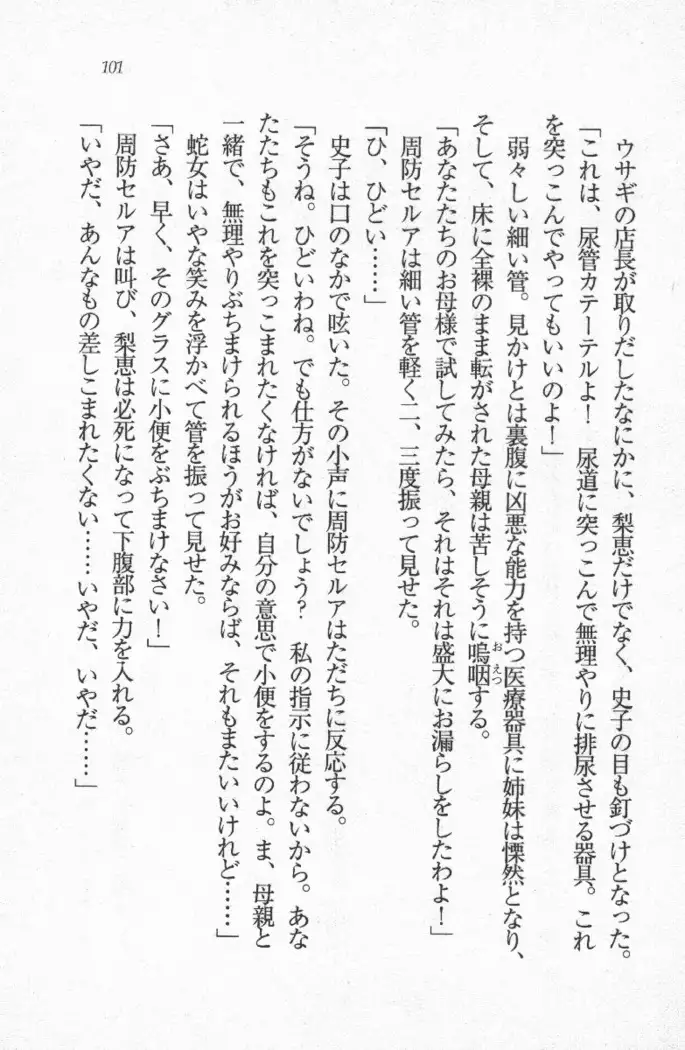 101
ウサギの店長が取りだしたなにかに、梨恵だけでなく、史子の目も釘づけとなった。
「これは、尿管カテーテルよ！　尿道に突っこんで無理やりに排尿させる器具。これ
を突っこんでやってもいいのよ！」
弱々しい細い管。見かけとは裏腹に凶悪な能力を持つ医療器具に姉妹は慄然となり、
そして、床に全裸のまま転がされた母親は苦しそうに嗚咽おえつする。
「あなたたちのお母様で試してみたら、それはそれは盛大にお漏らしをしたわよ！」
周防セルアは細い管を軽く二、三度振って見せた。
「ひ、ひどい……」
史子は口のなかで呟いた。その小声に周防セルアはただちに反応する。
「そうね。ひどいわね。でも仕方がないでしょう？　私の指示に従わないから。あな
たたちもこれを突っこまれたくなければ、自分の意思で小便をするのよ。ま、母親と
一緒で、無理やりぶちまけられるほうがお好みならば、それもまたいいけれど……」
蛇女はいやな笑みを浮かべて管を振って見せた。
「さあ、早く、そのグラスに小便をぶちまけなさい！」
周防セルアは叫び、梨恵は必死になって下腹部に力を入れる。
「いやだ、あんなもの差しこまれたくない……いやだ、いやだ……」